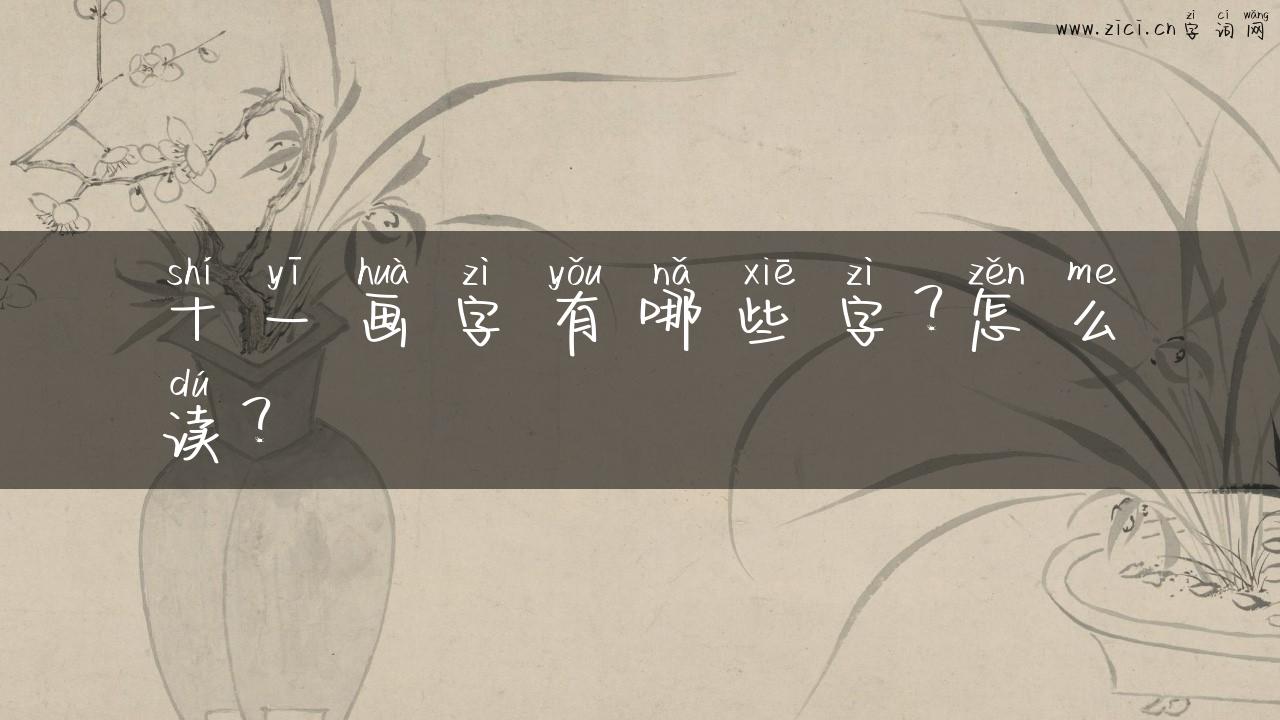 zì cí wǎng
www.zici.cn 字词网
shí yī huà zì yǒu nǎ xiē zì zěn me
十一画字有哪些字?怎么
dú
读?